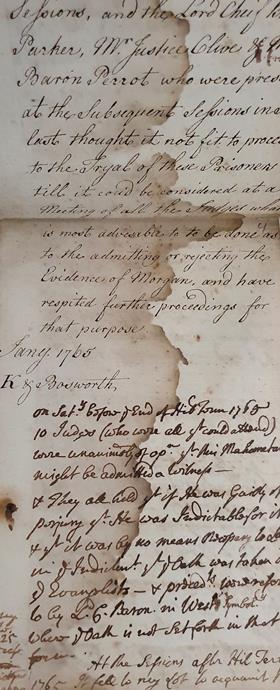 Sessions, and the Lord Cheif
Parker, Mr. Justice Clive &
Baron Perrot who were pres
at the Subsequent Sessions in
last thought it not fit to proce
to the Tryal of these Prisoners
till it could be considered at a
Meeting of all the Judges
is most adviseable to be done as
to the admitting or rejecting the
Evidence of Morgan, and have
respited further proceedings for
that purpose.
Jany. 1765
K & Bosworth,
on Satd. before ye End of Term 1765
10 Judges (who were all yt could attend)
were unanimously of opn. yt this Mahometan
might be admitted a witness —
& They all held yt if He was Guilty of
perjury yt He was Indictable for it
& yt it was by no means
in ye Indictmt. yt ye Oath was taken
ye Evangelists — &
by Ld. C. Baron in
where ye Oath is not Set forth in that
form.
At the Sessions after Hil Ter
1765 It fell to my Lot to acquaint